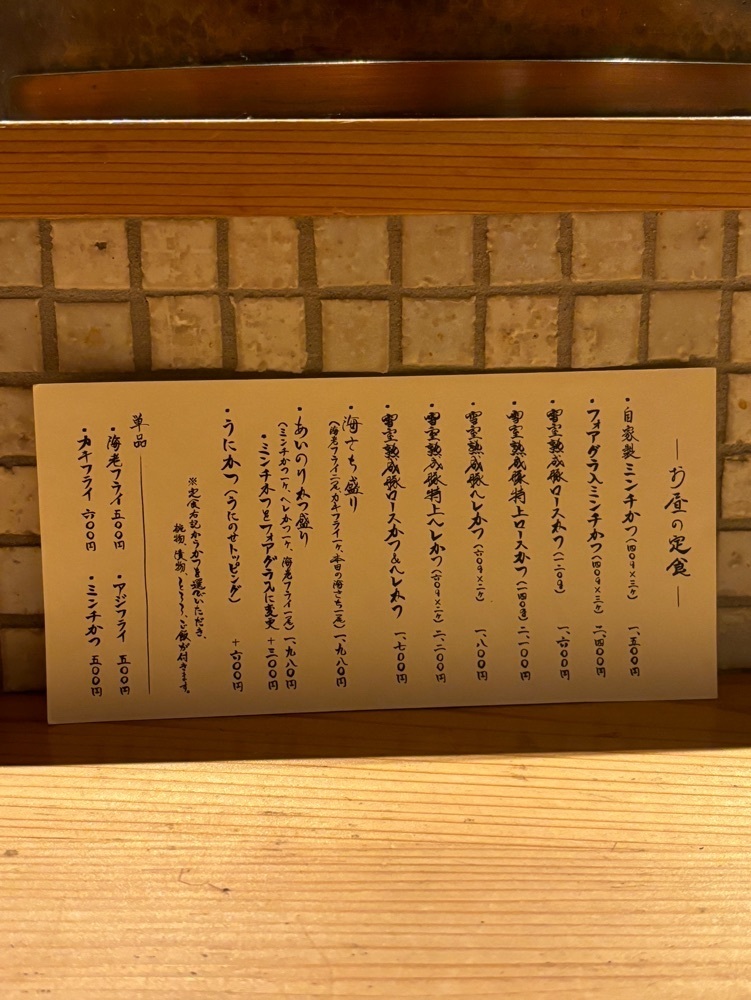 お昼の定食
・自家製ミンチかつ(四〇g×三ヶ) 一、五〇〇円
・フォアグラ入ミンチかつ(四〇g×三ヶ) 二、四〇〇円
・雪室熟成豚ロースかつ(一二〇g) 一、六〇〇円
・雪室熟成豚特上ロースかつ(一四〇g) 二、一〇〇円
・雪室熟成豚ヘレかつ(六〇g×二ヶ) 一、八〇〇円
・雪室熟成豚特上ヘレかつ(六〇g×二ヶ) 二、二〇〇円
・雪室熟成豚ロースかつ&ヘレかつ 一、七〇〇円
・海さち盛り
(海老フライ二尾、カキフライ一ヶ、本日の海さち一尾) 一、九八〇円
・あいのりかつ盛り
(ミンチかつ一ヶ、ヘレかつ一ヶ、海老フライ一尾) 一、九八〇円
・ミンチかつをフォアグラ入に変更 +三〇〇円
・うにかつ(うにのせトッピング) +六〇〇円
※定食右記からかつを選でいただき、
椀物、漬物、とろろ、ご飯が付きます。
単品
・海老フライ 五〇〇円 ・アジフライ 五〇〇円
・カキフライ 六〇〇円 ・ミンチかつ 五〇〇円